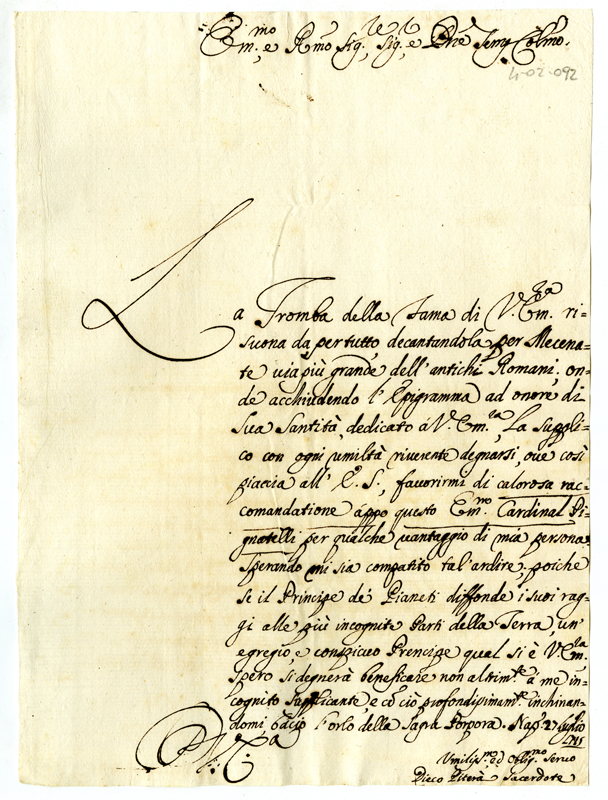 Em.mo e Rmo Sig.re, Sig.r e Pne Semp Colmo.
4-02-092
La Tromba della Fama di V. Em.za ri=
suona da per tutto decantandola per Mecena=
te via più grande dell'antichi Romani. on=
de acchiudendo l'Epigramma ad onore di
Sua Santità, dedicato á V. Em.za, La suppli=
co con ogni umiltà riverente degnarsi, ove così
piaccia all' E. S., favorirmi di calorosa rac=
comandatione appo questo Em.mo Cardinal Pi=
gnatelli per qualche vantaggio di mia persona
sperando mi sia compatito tal'ardire. poiche
se il Principe de' Pianeti diffonde i suoi rag=
gi alle più incognite Parti della Terra, un'
egregio, e conspicuo Prencipe qual si è V. Em.za
spero si degnerà beneficare non altrim.te a me in=
cognito supplicante, e co' ciò profondissimam.te inchinan=
domi bacio l'orlo della Sagra Porpora. Nap. 27 luglio
V. E.za
Umiliss.mo ed Oblig.mo Servo
Pterà Sacerdote